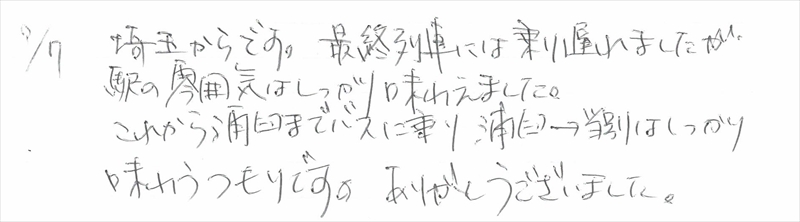 9/7 埼玉からです。最終列車には乗り遅れましたが、
駅の雰囲気はしっかり味わえました。
これから浦臼までバスに乗り浦臼→当別はしっかり
味わうつもりです。ありがとうございました。